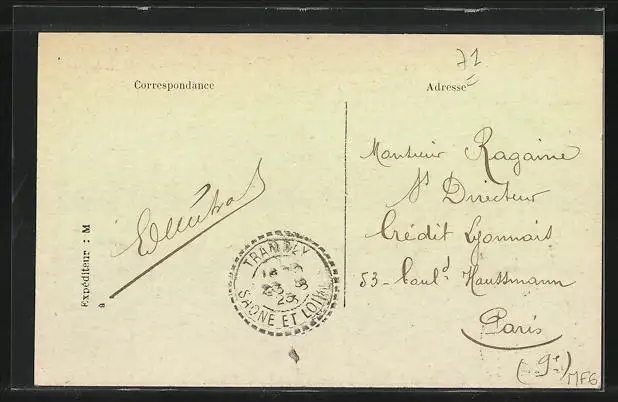 71
Correspondance
Adresse
Expéditeur : M
à
TRAMBLY
SAÔNE ET LOIRE
Monsieur Ragaine
Directeur
Crédit Lyonnais
53 - Boul^d Haussmann
Paris
(9^e)
MF6